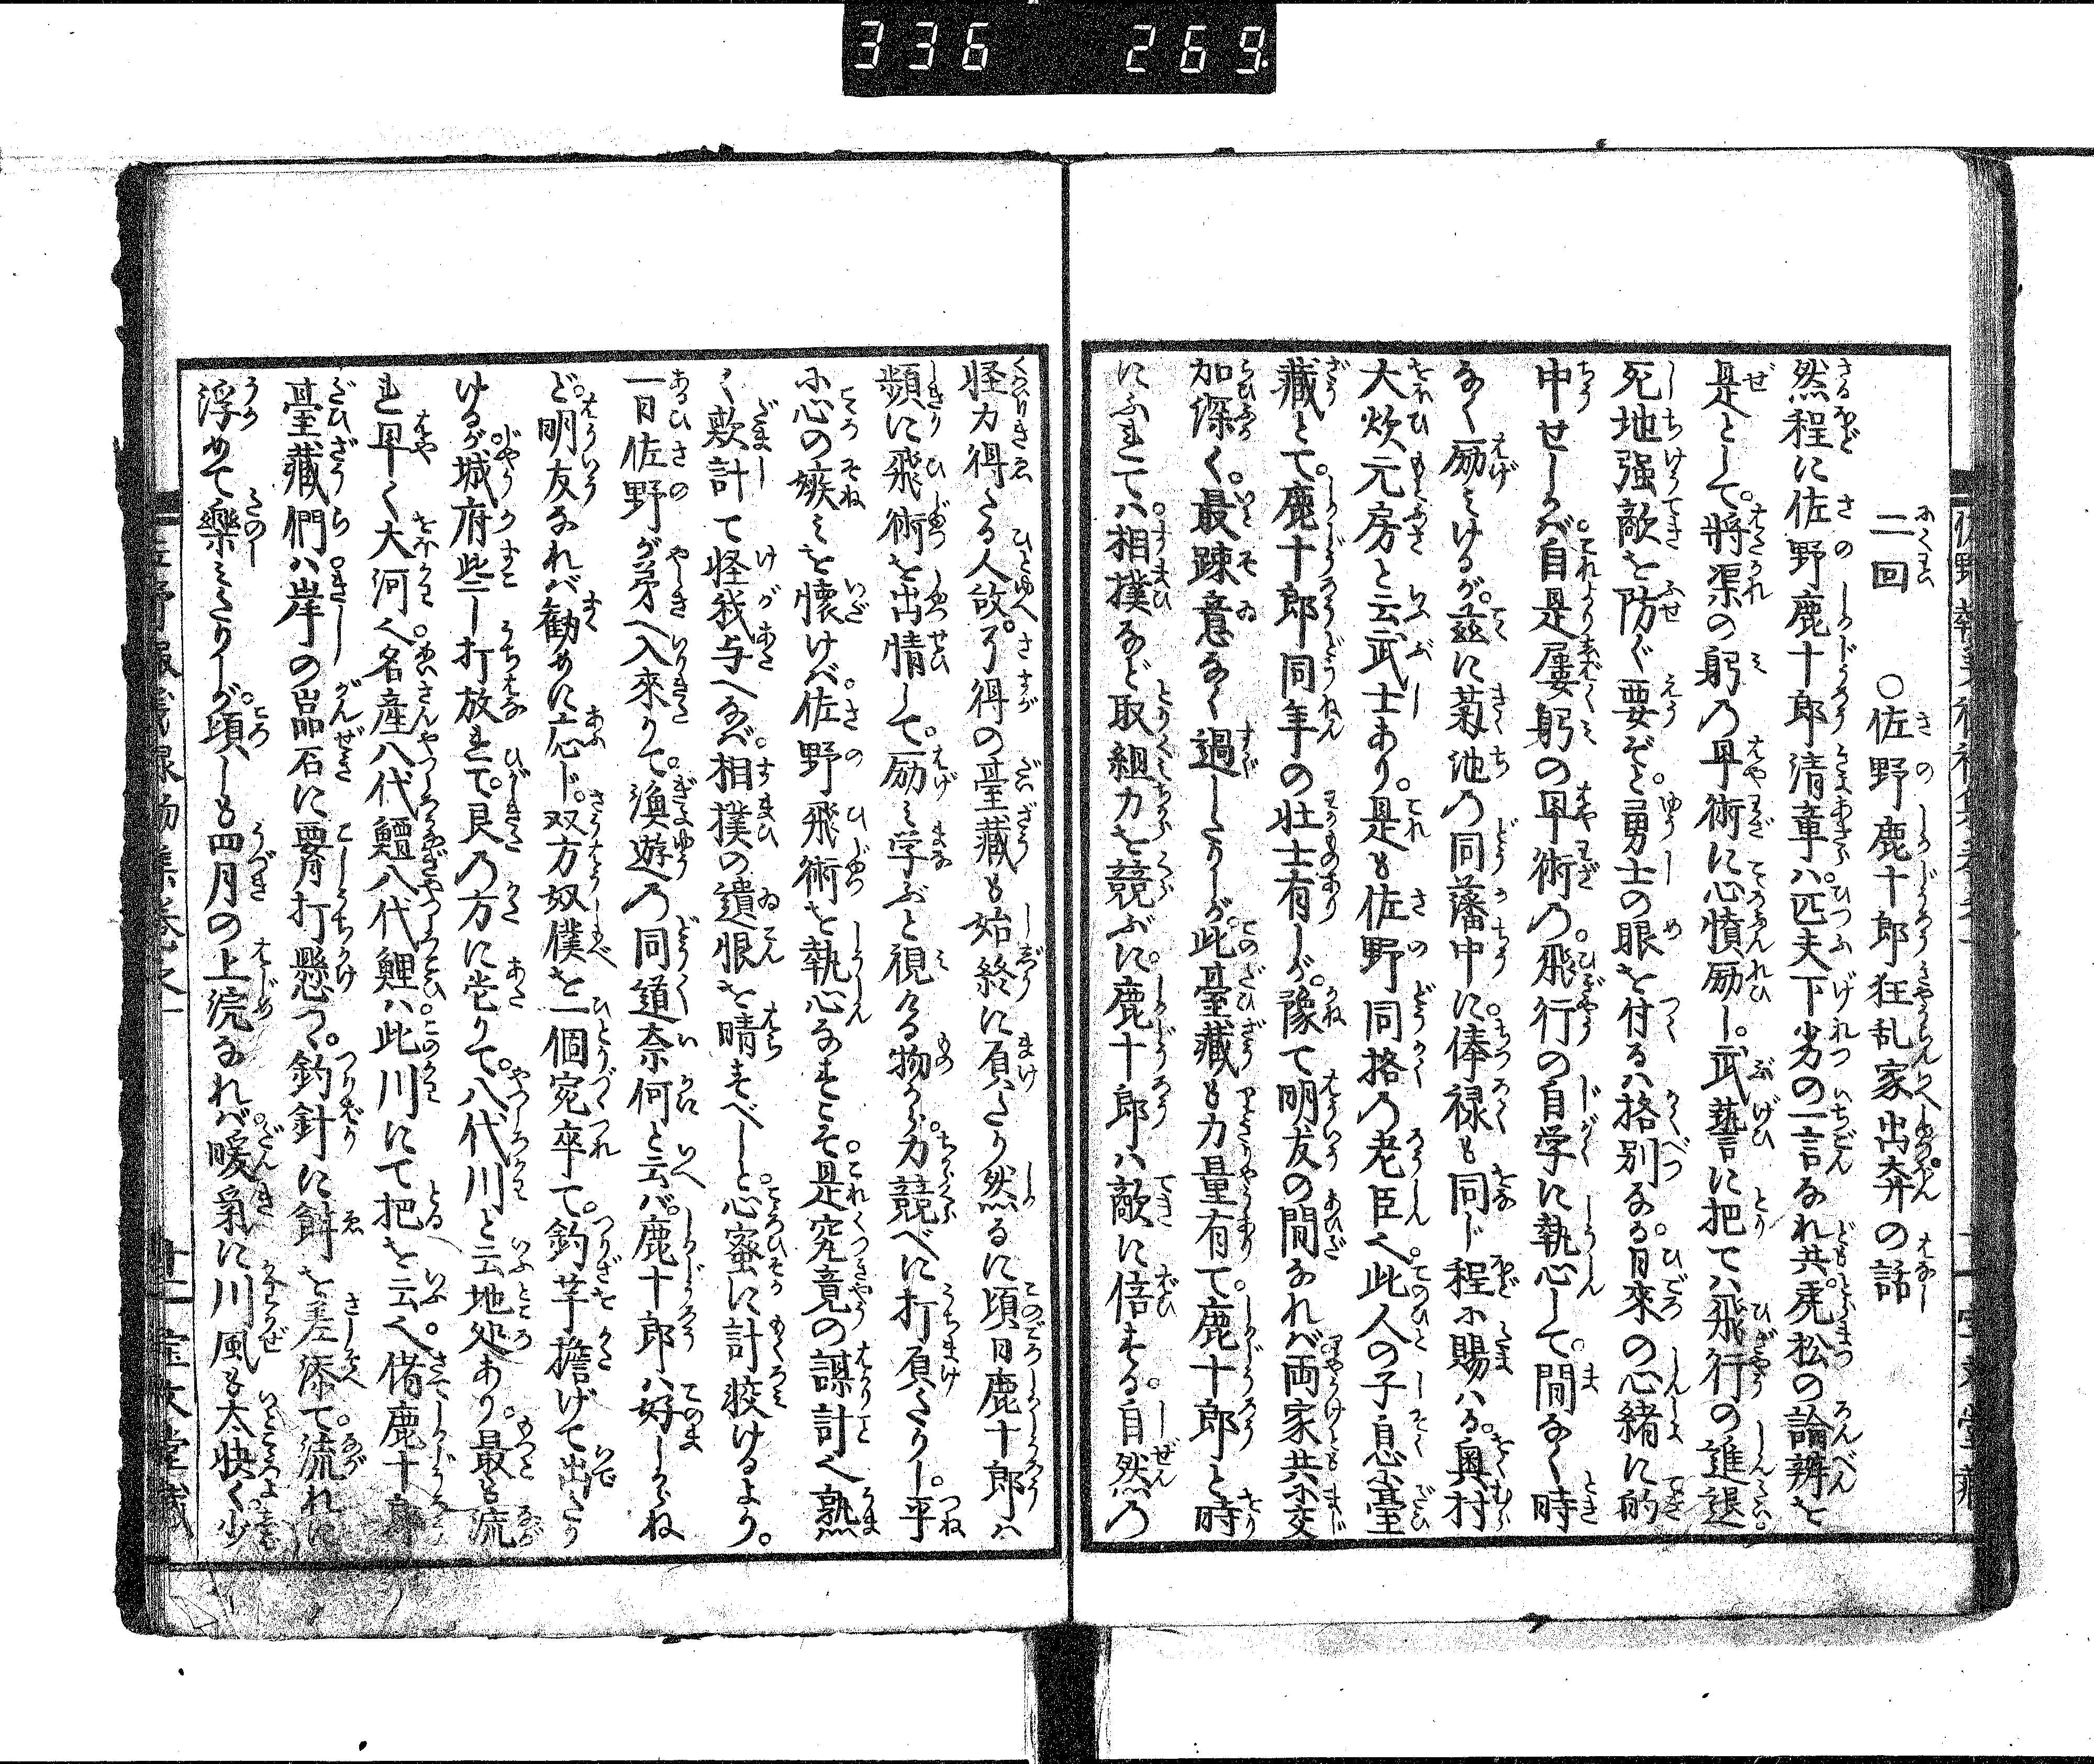 336 269
二回 ○佐野鹿十郎狂乱家出奔の話
然程に佐野鹿十郎清章ハ匹夫下劣の一言なれ共。虎松の論辨を
是として。将渠の躬乃早術に心憤励し。武藝に把てハ飛行の進退
死地强敵を防ぐ要ぞと。勇士の眼を付るハ格別なる。日來の心緒に的
中せしかバ。自是屡躬の早術乃。飛行の自学に執心して。間なく時
なく励ミけるが。茲に菊池乃同藩中に。俸禄も同じ程に賜ハる。奥村
大炊元房と云武士あり。是も佐野同格乃老臣也。此人の子息に臺
藏とて。鹿十郎同年の壮士有しが。豫て朋友の間なれバ両家共に交
加深く。最踈意なく過したりしが。此臺藏も力量有て。鹿十郎と時
にふれてハ。相撲など取組力を競ぶに。鹿十郎ハ敵に倍する。自然乃
怪力得たる人故。さ得の臺藏も始終に負たり然るに頃日鹿十郎ハ
頻に飛術を出情して。励ミ学ぶと視ゆる物から。力競べに打負たりし。平
に心の嫉ミを懐けバ。佐野飛術を執心なすこそ。是究竟の謀計也。熟
く欺計て怪我与へなバ。相撲の遺恨を晴すべしと。心蜜に計較けるより。
一日佐野が弟へ入來りて。漁遊乃同道奈何と云バ。鹿十郎ハ好しかね
ど。朋友なれバ勧めに応じ。双方奴僕を一個宛卒て。釣竿擔げて出たり
けるが。城府些し打放れて。艮乃方に当りて。八代川と云地処あり。最も流
れ早く大河也。名産八代鱣八代鯉ハ此川にて把を云也。偖鹿十郎
臺藏們ハ。岸の嵓石に腰打懸つ。釣針に餌を差添て。流れに
浮めて樂ミたりしが。頃しも四月の上浣なれバ。暖氣に川風も太快く。少